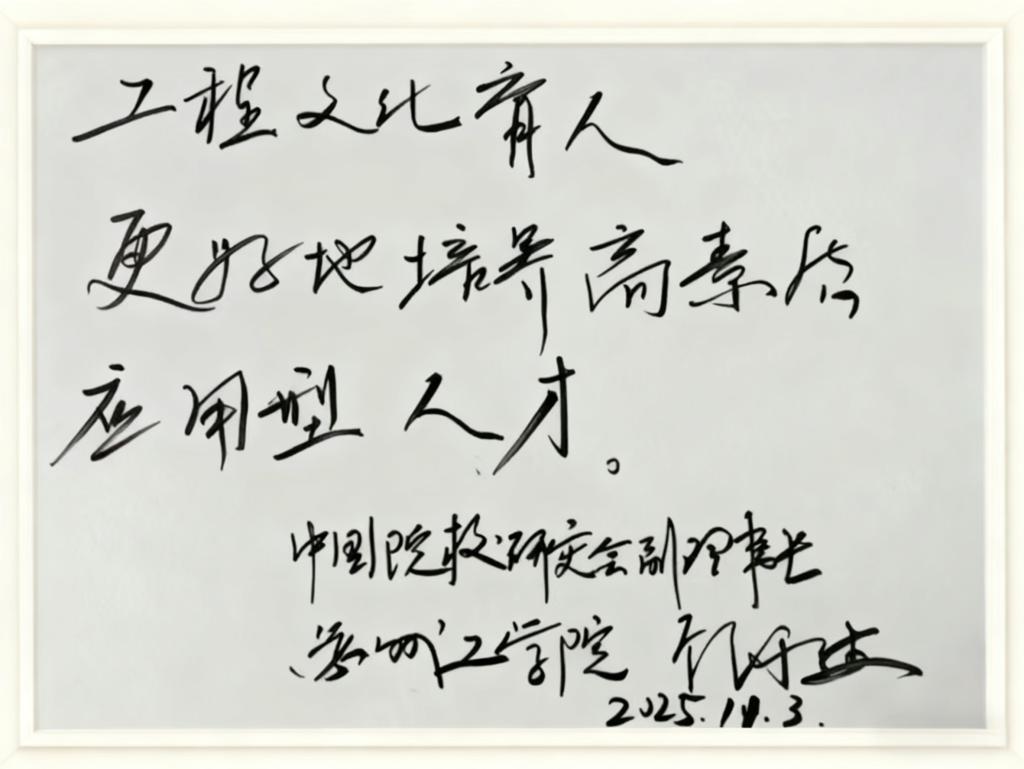 工程文化育人
更好地培养高素质
应用型人才。
中国院校研究会副理事长
常州工学院
2025.10.3.